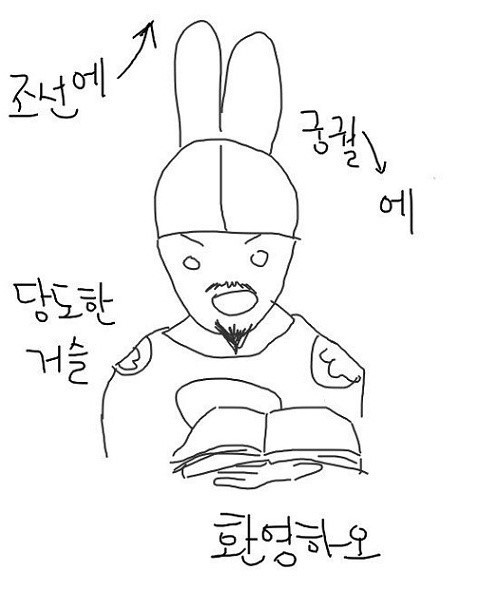 조선에
궁궐
에
당도한
거슬
환영하오